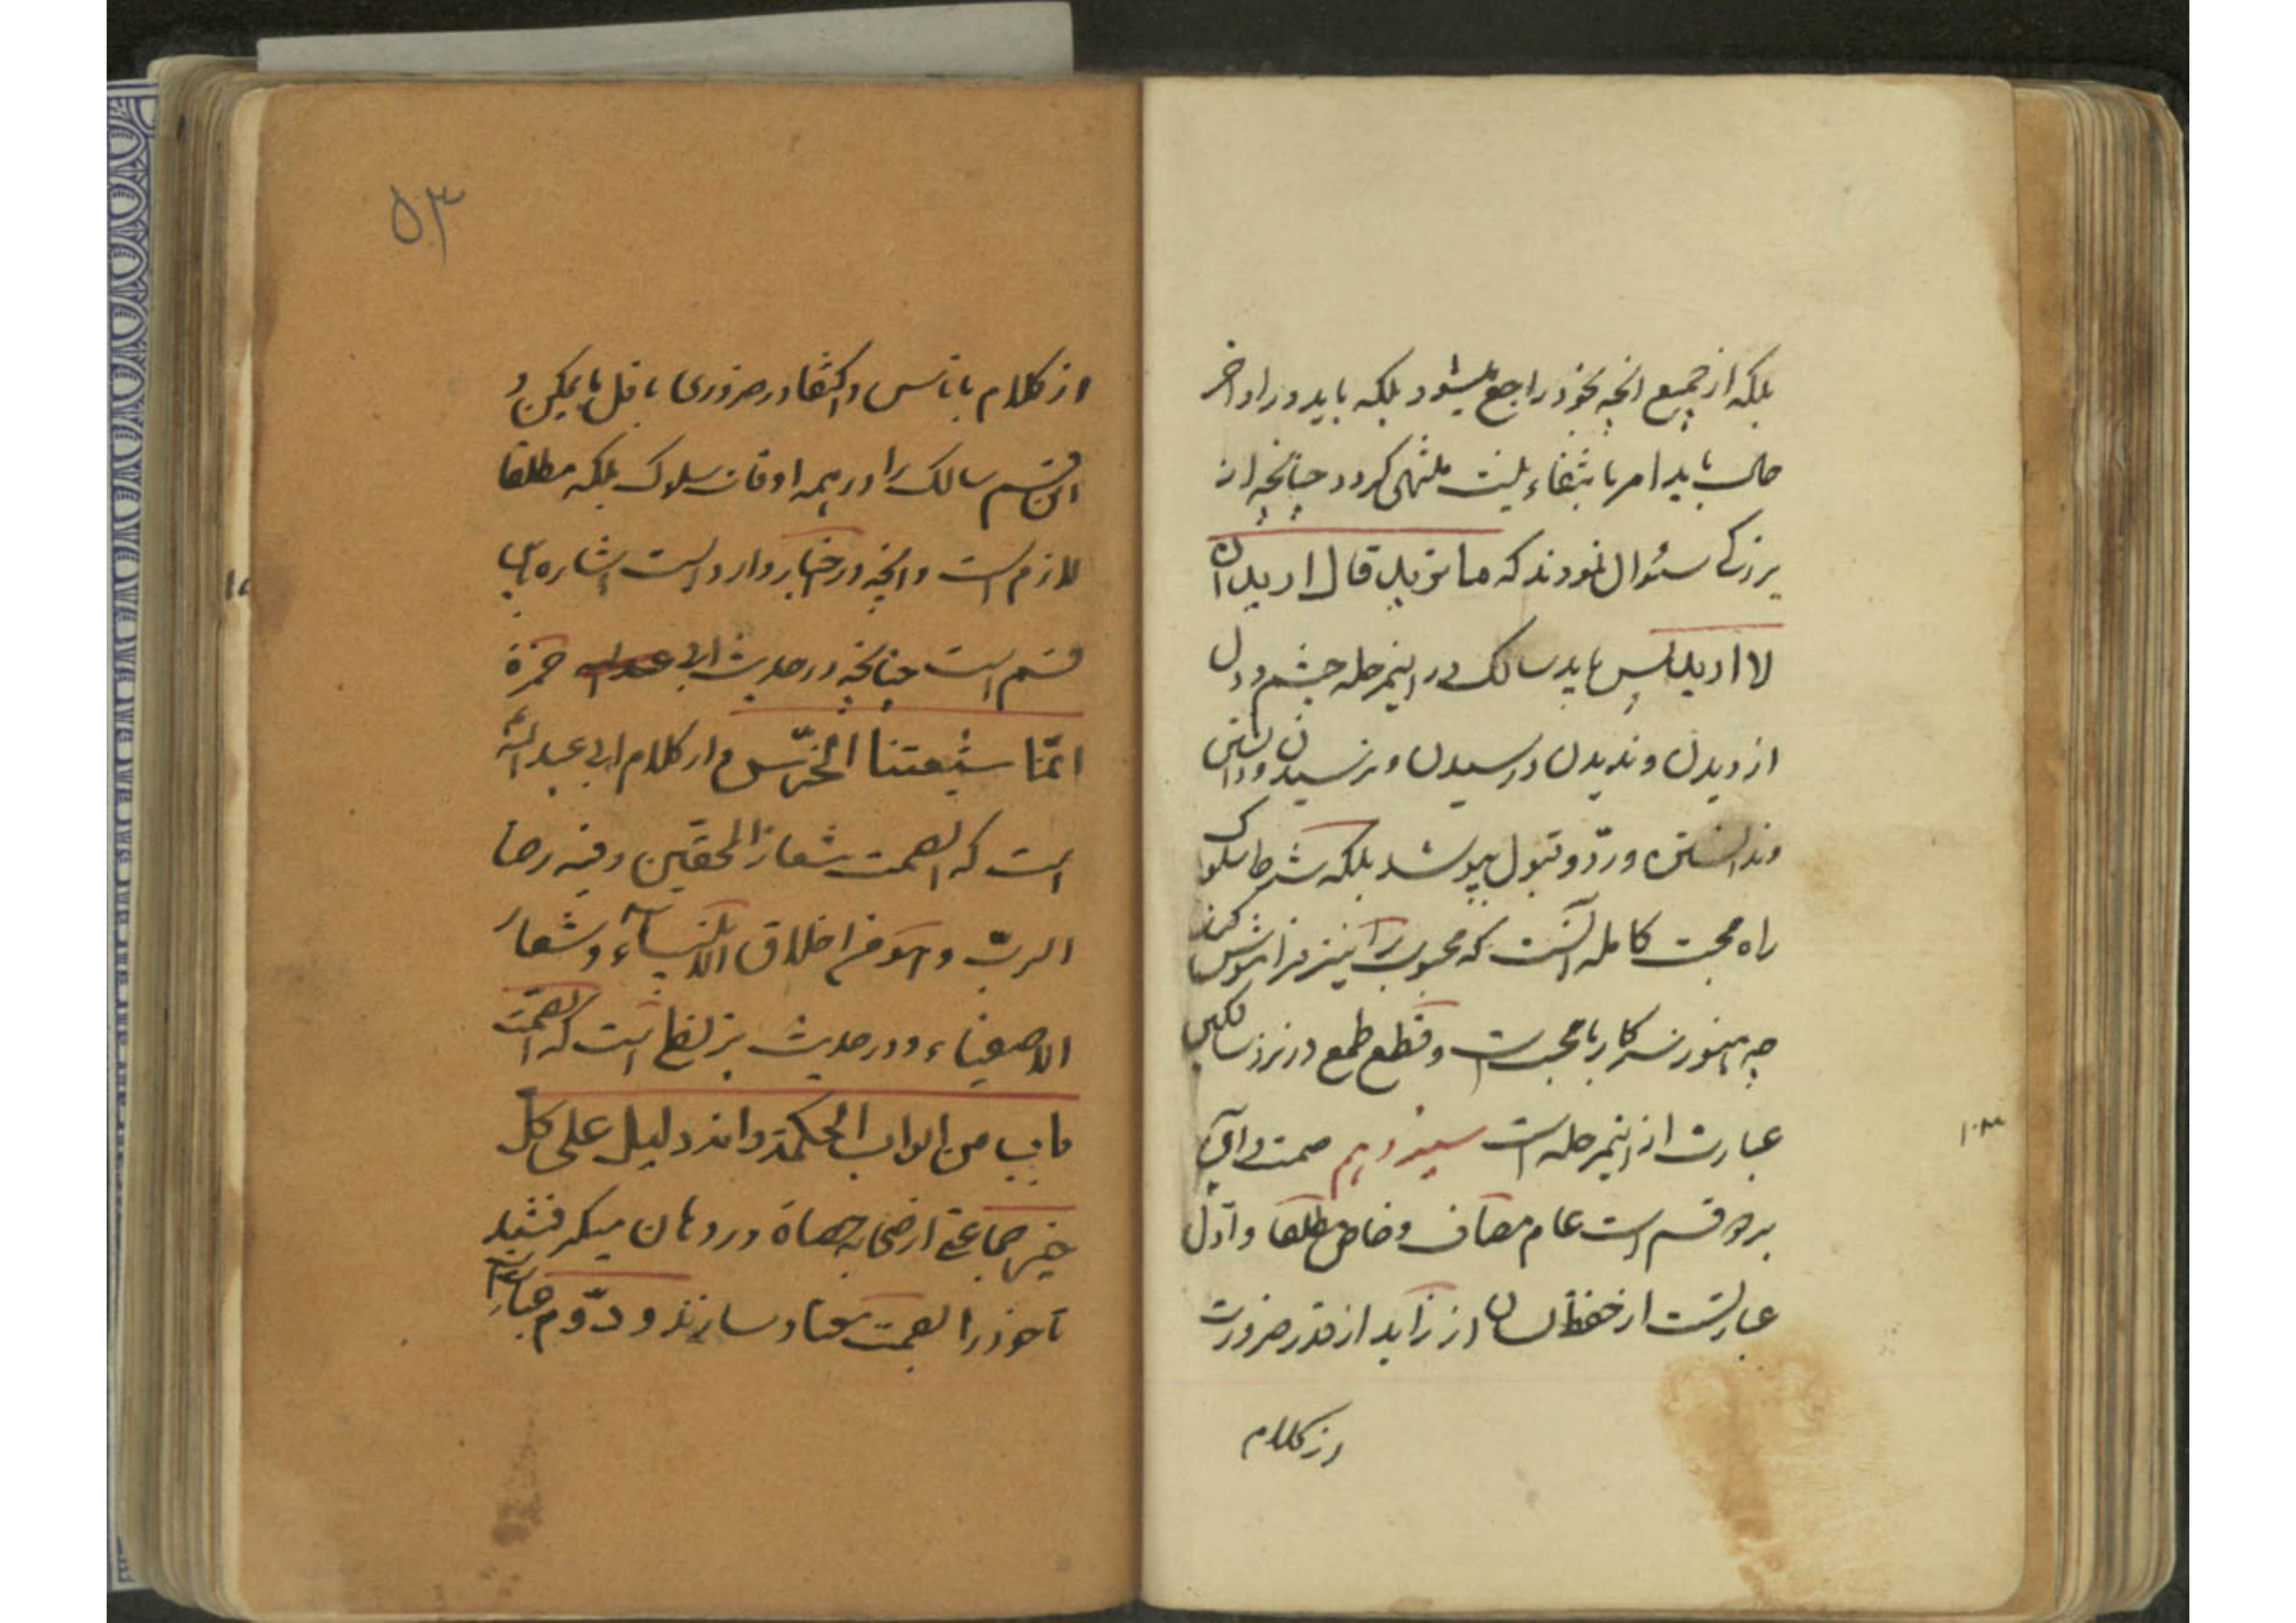 بلکه از جمیع آنچه بخود راجع میشود بلکه باید در اواخر
حال باید امر بانتفاء نیت منتهی گردد چنانچه از
بزرگی سئوال نمودند که ما ترید قال ارید ان
لا ارید پس باید سالک در اینمرحله چشم و دل
از دیدن و ندیدن و رسیدن و نرسیدن و دانستن
و ندانستن و ردّ و قبول بپوشد بلکه شرط سلوک
راه محبت کامله آنست که محبوب را نیز فراموش کند
چه هنوز سر کار با محبت است و قطع طمع در نزد سالکین
عبارت از اینمرحله است سیزدهم صمت و آن
بر دو قسم است عام مضاف و خاص مطلقا و اوّل
عبارتست از حفظ لسان از زاید از قدر ضرورت
از کلام
۵۳
از کلام با ناس و اکتفا در ضروری باقل ما یمکن و
این قسم سالک را در همه اوقات سلوک بلکه مطلقا
لازم است و آنچه در اخبار وارد است اشاره باین
قسم است چنانچه در حدیث ابی حمزة
انّما شیعتنا الخرّس و از کلام ابی عبد اللّه
است که الصمت شعار المحقین و فیه رضا
الربّ و هو من اخلاق الانبیاء و شعار
الاصفیاء و در حدیث بزنطی است که الصمت
باب من ابواب الحکمة و انه دلیل علی کل
خیر جماعتی از صحابه حصاة در دهان میگرفتند
تا خود را بصمت معتاد سازند و دوّم عبارتست